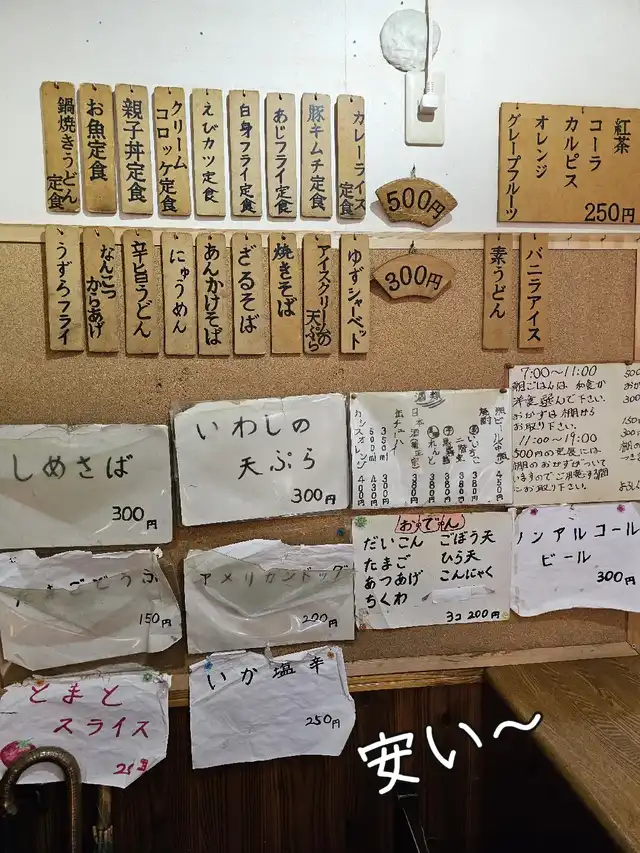 カレーライス定食
豚キムチ定食
あじフライ定食
白身フライ定食
えびカツ定食
クリームコロッケ定食
親子丼定食
お魚定食
鍋焼きうどん定食
500円
紅茶
コーラ
カルピス
オレンジ
グレープフルーツ
250円
ゆずシャーベット
アイスクリームの天ぷら
焼きそば
ざるそば
あんかけそば
にゅうめん
辛旨うどん
なんこつからあげ
うずらフライ
300円
バニラアイス
素うどん
しめさば
300円
いわしの
天ぷら
300円
酒類
缶チューハイ
350ml
500ml
カシスオレンジ
7:00~11:00
朝ごはんは 和食か
洋食選んで下さい。
おかずは棚から
お取り下さい。
11:00~19:00
500円の定食には
棚のおかずがついて
いますのでご用意する間
にお取り下さい。
150円
アメリカンドッグ
200円
おでん
だいこん ごぼう天
たまご ひら天
あつあげ こんにゃく
ちくわ
3コ 200円
ノンアルコール
ビール
300円
とまと
スライス
いか塩辛
250円
安い~